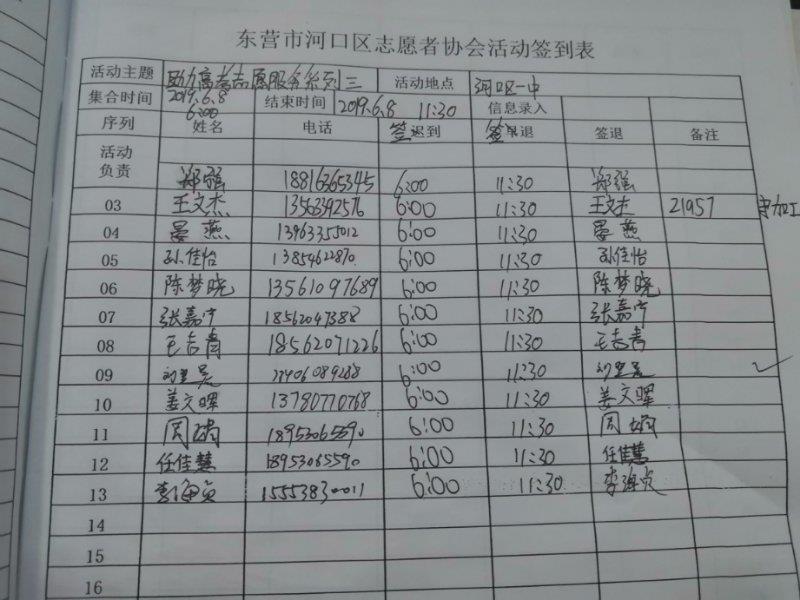 东营市河口区志愿者协会活动签到表
活动主题 助力高考志愿服务系列三 活动地点 河口区一中
集合时间 2019.6.8 6:00 结束时间 2019.6.8 11:30 信息录入
序列 姓名 电话 签到 签退 签退 备注
活动负责 郑强 18816365345 6:00 11:30 郑强
03 王文杰 13563342576 6:00 11:30 王文杰 21957 加工
04 晏燕 13963355012 6:00 11:30 晏燕
05 孙佳怡 13854622870 6:00 11:30 孙佳怡
06 陈梦晓 13561097689 6:00 11:30 陈梦晓
07 张嘉宁 18562047388 6:00 11:30 张嘉宁
08 18562071226 6:00 11:30
09 6:00 11:30
10 姜文晖 13780770768 6:00 11:30 姜文晖
11 周娟 18953065590 6:00 11:30 周娟
12 任佳慧 18953065590 6:00 11:30 任佳慧
13 15553830011 6:00 11:30
14
15
16